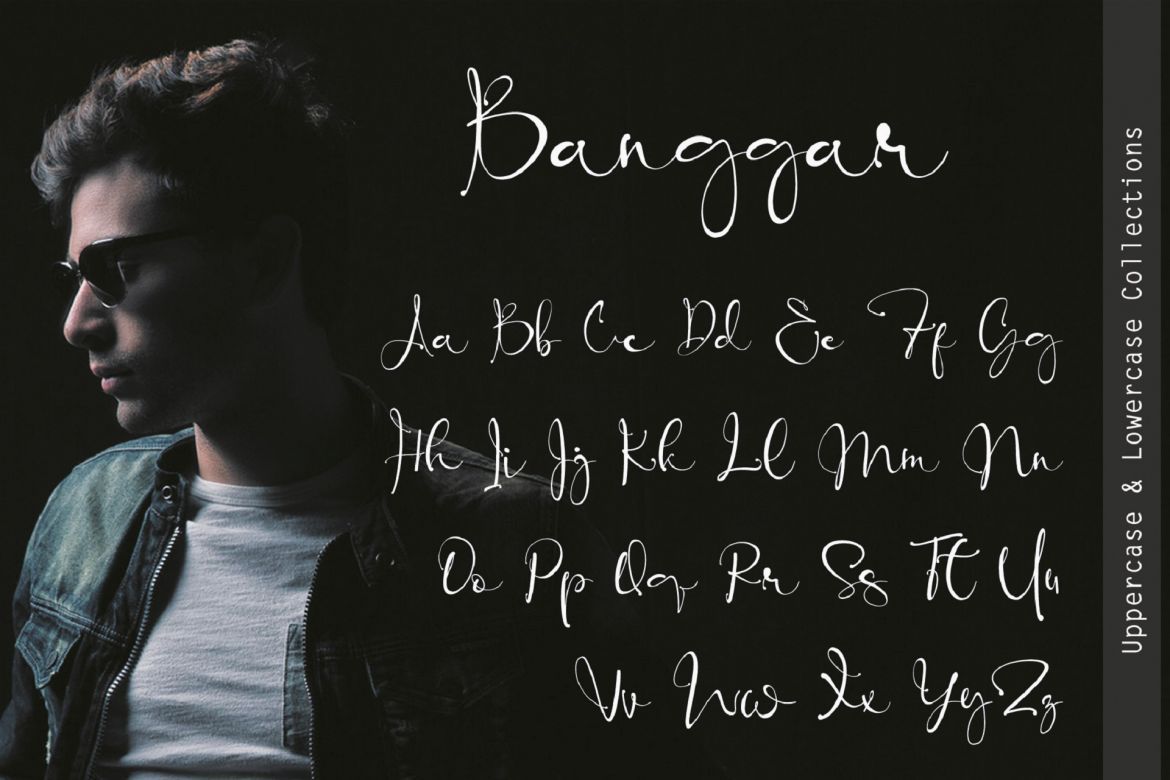 Banggar
Aa Bb Cc Dd Ee Ff Gg
Hh Ii Jj Kk Ll Mm Nn
Oo Pp Qq Rr Ss Tt Uu
Vv Ww Xx Yy Zz
Uppercase & Lowercase Collections